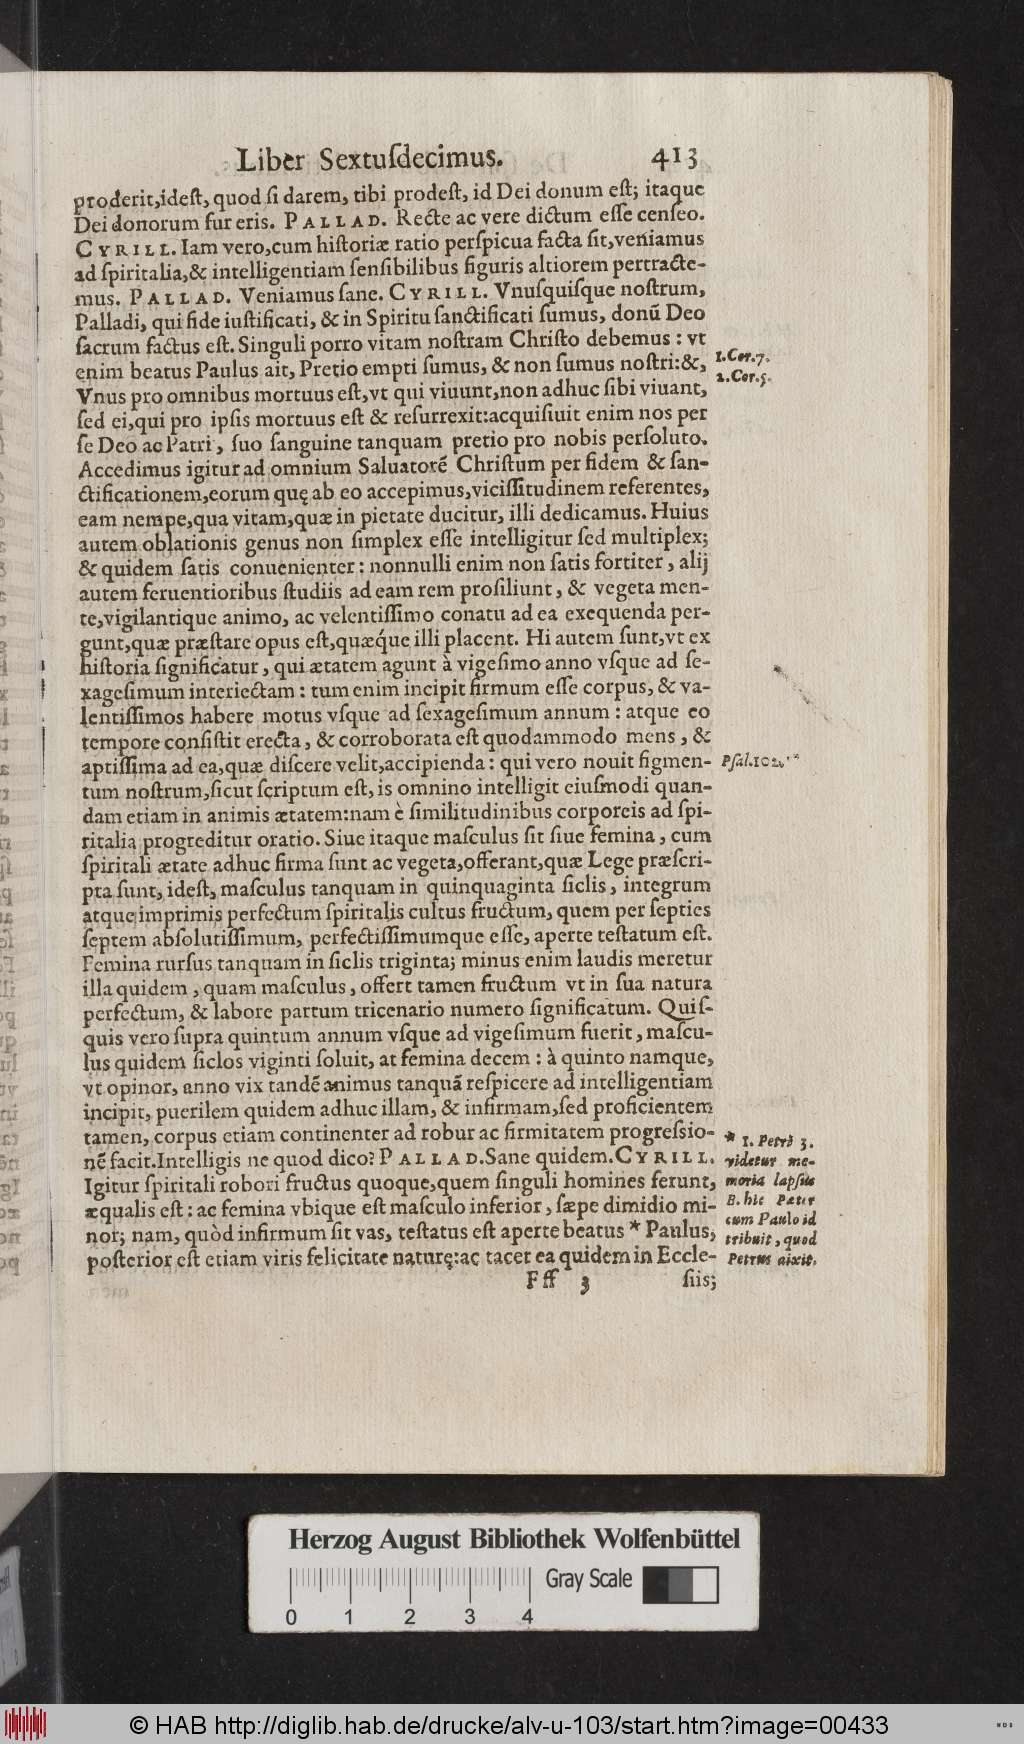 Liber Sextuſdecimus. 413
proderit,ideſt, quod ſi darem, tibi prodeſt, id Dei donum eſt; itaque
Dei donorum fur eris. PALLAD. Recte ac vere dictum eſſe cenſeo.
CYRILL. Iam vero,cum hiſtoriæ ratio perſpicua facta ſit,veniamus
ad ſpiritalia,& intelligentiam ſenſibilibus figuris altiorem pertracte-
mus. PALLAD. Veniamus ſane. CYRILL. Vnuſquiſque noſtrum,
Palladi, qui fide iuſtificati, & in Spiritu ſanctificati ſumus, donū Deo
ſacrum factus eſt. Singuli porro vitam noſtram Chriſto debemus : vt
enim beatus Paulus ait, Pretio empti ſumus, & non ſumus noſtri:&,
1.Cor.7.
Vnus pro omnibus mortuus eſt,vt qui viuunt,non adhuc ſibi viuant,
2.Cor.5.
ſed ei,qui pro ipſis mortuus eſt & reſurrexit:acquiſiuit enim nos per
ſe Deo ac Patri, ſuo ſanguine tanquam pretio pro nobis perſoluto.
Accedimus igitur ad omnium Saluatorē Chriſtum per fidem & ſan-
ctificationem,eorum quę ab eo accepimus,viciſſitudinem referentes,
eam nempe,qua vitam,quæ in pietate ducitur, illi dedicamus. Huius
autem oblationis genus non ſimplex eſſe intelligitur ſed multiplex;
& quidem ſatis conuenienter : nonnulli enim non ſatis fortiter, alij
autem feruentioribus ſtudiis ad eam rem proſiliunt, & vegeta men-
te,vigilantique animo, ac velentiſſimo conatu ad ea exequenda per-
gunt,quæ præſtare opus eſt,quæq́ue illi placent. Hi autem ſunt,vt ex
hiſtoria ſignificatur, qui ætatem agunt à vigeſimo anno vſque ad ſe-
xageſimum interiectam : tum enim incipit firmum eſſe corpus, & va-
lentiſſimos habere motus vſque ad ſexageſimum annum : atque eo
tempore conſiſtit erecta, & corroborata eſt quodammodo mens, &
aptiſſima ad ea,quæ diſcere velit,accipienda : qui vero nouit figmen-
Pſal.102.
tum noſtrum,ſicut ſcriptum eſt, is omnino intelligit eiuſmodi quan-
dam etiam in animis ætatem:nam è ſimilitudinibus corporeis ad ſpi-
ritalia progreditur oratio. Siue itaque maſculus ſit ſiue femina, cum
ſpiritali ætate adhuc firma ſunt ac vegeta,offerant,quæ Lege præſcri-
pta ſunt, ideſt, maſculus tanquam in quinquaginta ſiclis, integrum
atque imprimis perfectum ſpiritalis cultus fructum, quem per ſepties
ſeptem abſolutiſſimum, perfectiſſimumque eſſe, aperte teſtatum eſt.
Femina rurſus tanquam in ſiclis triginta; minus enim laudis meretur
illa quidem, quam maſculus, offert tamen fructum vt in ſua natura
perfectum, & labore partum tricenario numero ſignificatum. Quiſ-
quis vero ſupra quintum annum vſque ad vigeſimum fuerit, maſcu-
lus quidem ſiclos viginti ſoluit, at femina decem : à quinto namque,
vt opinor, anno vix tandē animus tanquā reſpicere ad intelligentiam
incipit, puerilem quidem adhuc illam, & infirmam,ſed proficientem
tamen, corpus etiam continenter ad robur ac firmitatem progreſſio-
nē facit.Intelligis ne quod dico? PALLAD.Sane quidem.CYRILL.
Igitur ſpiritali robori fructus quoque,quem ſinguli homines ferunt,
æqualis eſt : ac femina vbique eſt maſculo inferior, ſæpe dimidio mi-
nor; nam, quòd infirmum ſit vas, teſtatus eſt aperte beatus * Paulus;
poſterior eſt etiam viris felicitate naturę:ac tacet ea quidem in Eccle-
* 1. Petri 3.
videtur me-
moria lapſus
B. hic Pater
cum Paulo id
tribuit, quod
Petrus dixit.
Fff 3 ſiis;
Herzog August Bibliothek Wolfenbüttel
Gray Scale
0 1 2 3 4
© HAB http://diglib.hab.de/drucke/alv-u-103/start.htm?image=00433